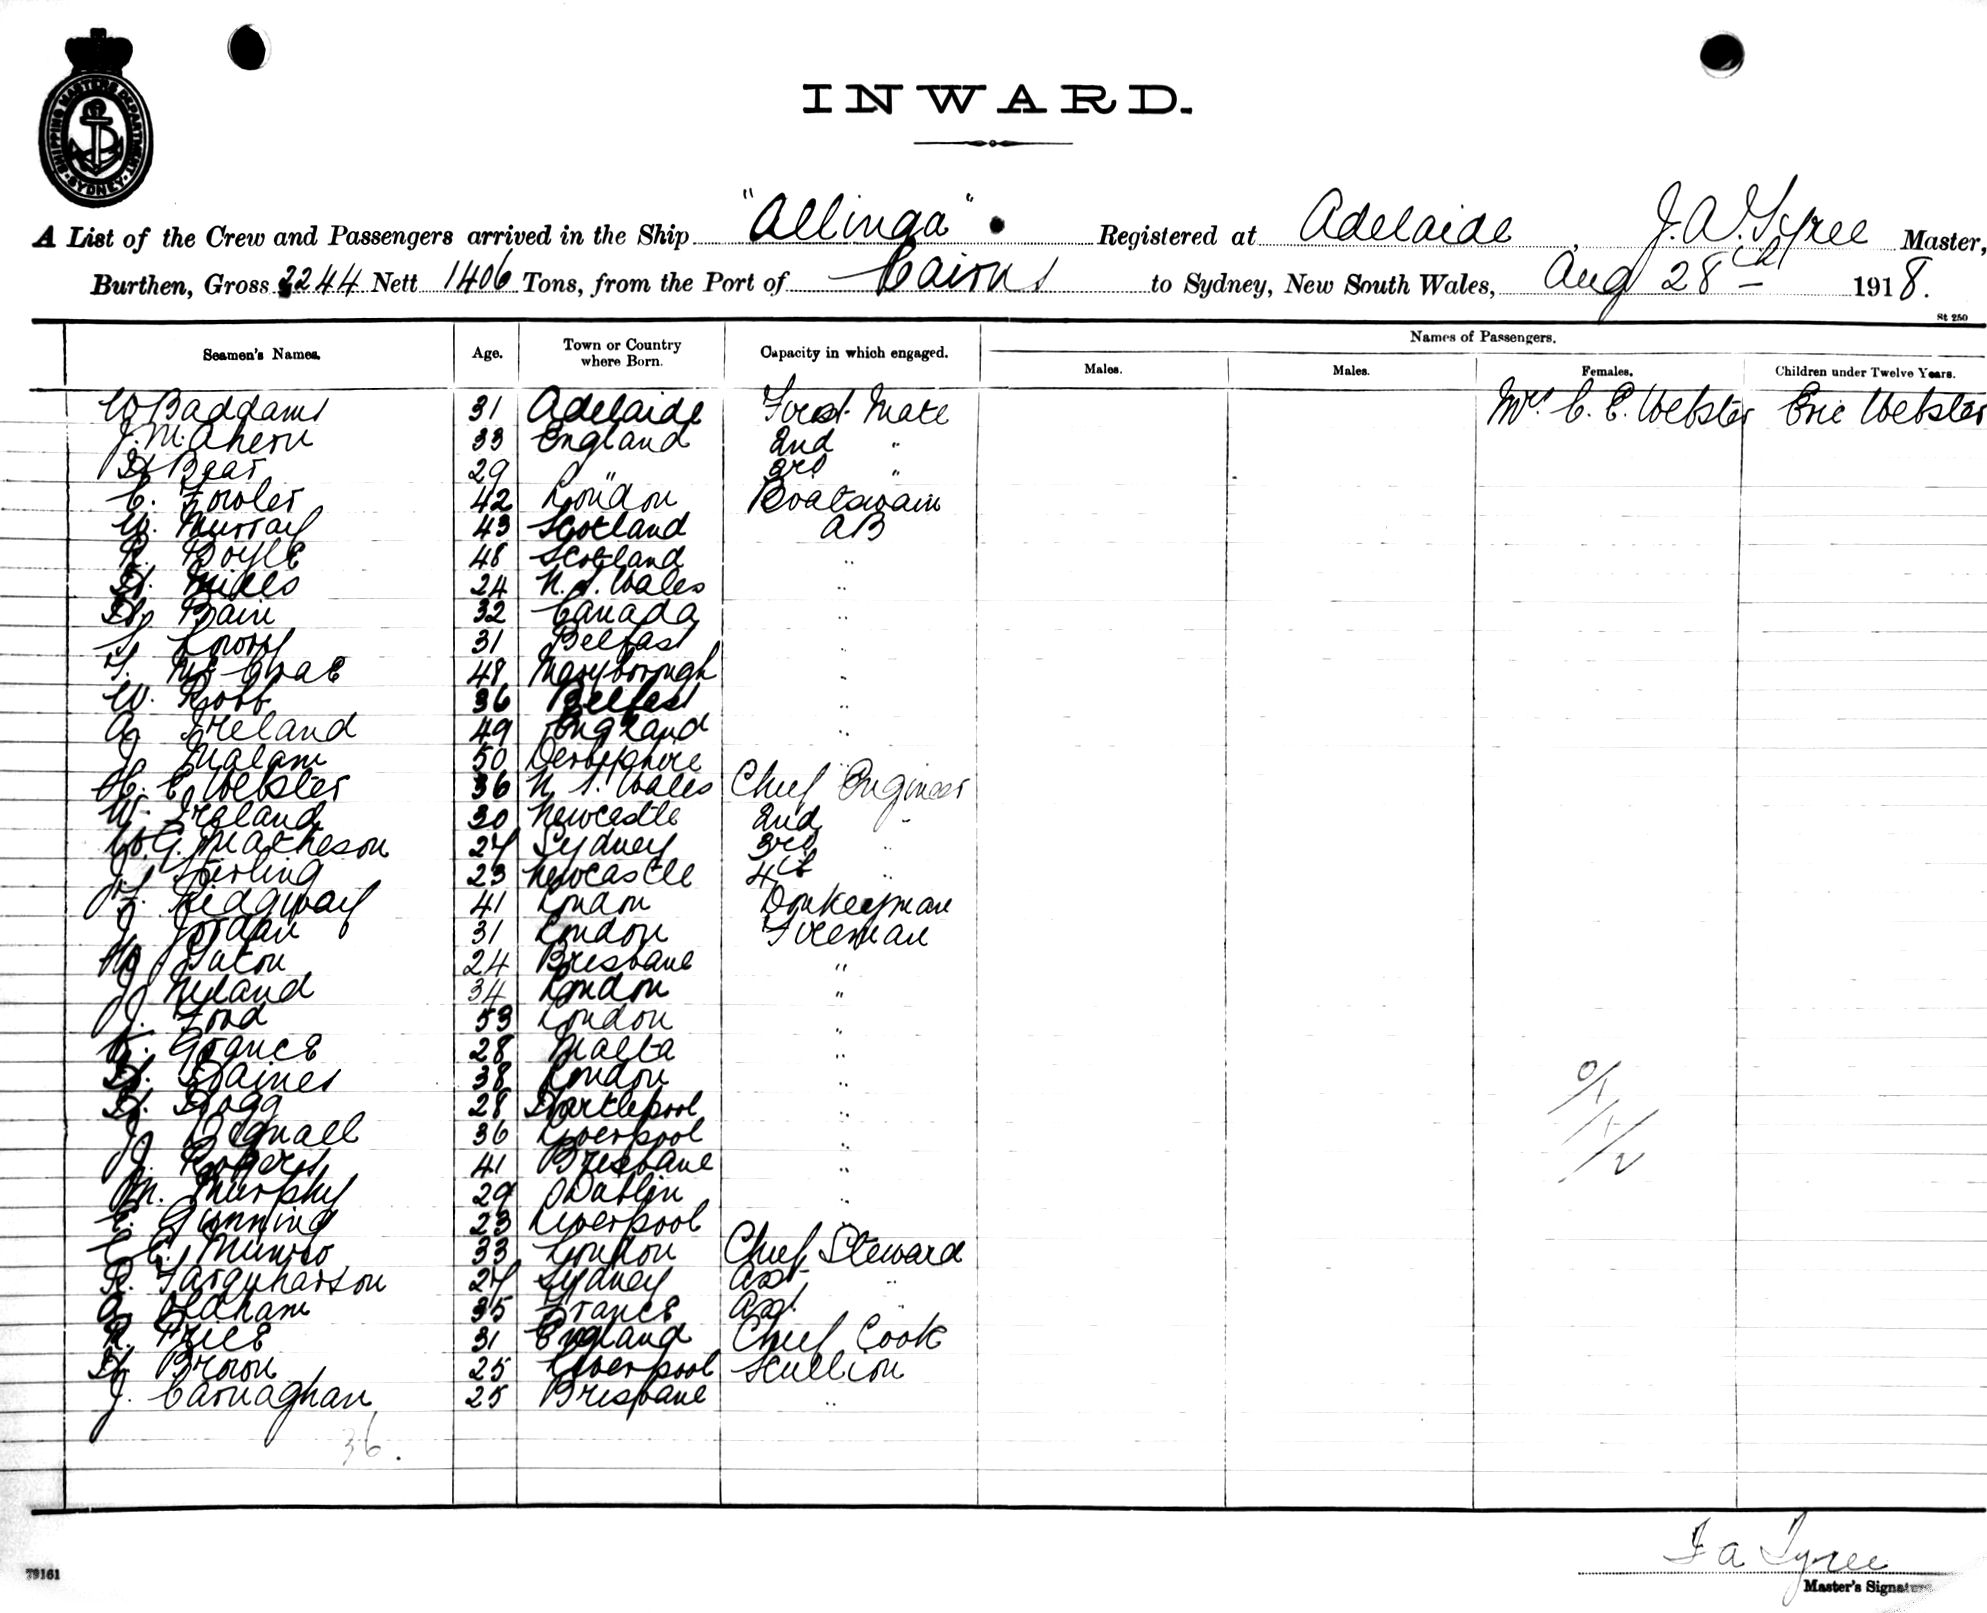 SHIPPING MASTERS DEPARTMENT SYDNEY
INWARD.
A List of the Crew and Passengers arrived in the Ship "Allinga" Registered at Adelaide, J. A. Tyree Master,
Burthen, Gross 2244 Nett 1406 Tons, from the Port of Cairns to Sydney, New South Wales, Aug 28th 1918.
St 250
Seamen's Names. Age. Town or Country where Born. Capacity in which engaged. Names of Passengers.
Males. Males. Females. Children under Twelve Years.
W Baddams 31 Adelaide First Mate Mrs C. E. Webster Eric Webster
J. M. Ahern 33 England 2nd "
H Bear 29 " 3rd "
C. Fowler 42 London Boatswain
W. Murray 43 Scotland AB
R. Boyle 48 Scotland "
H. Miles 24 N. S. Wales "
H. Bain 32 Canada "
S. Lowry 31 Belfast "
T. McCrae 48 Maryborough "
W. Robb 36 Belfast "
A. Ireland 49 England "
J. Malam 50 Derbyshire
H. E. Webster 36 N. S. Wales Chief Engineer
W. Ireland 30 Newcastle 2nd "
W. G. Matheson 27 Sydney 3rd "
J. Stirling 23 Newcastle 4th "
F. Ridgway 41 London Donkeyman
J. Jordan 31 London Fireman
24 Brisbane "
J. Nyland 34 London "
J. Ford 53 London "
28 Malta "
H. Baines 38 London "
H. Hogg 28 Hartlepool "
J. Dignall 36 Liverpool "
J. Rogers 41 Brisbane "
M. Murphy 29 Dublin "
E. Gunning 23 Liverpool
C. C. Munro 33 London Chief Steward
R. Farquharson 27 Sydney Asst. "
A. Oldham 35 France Asst. "
R. Price 31 England Chief Cook
H. Brown 25 Liverpool Scullion
J. Carnaghan 25 Brisbane "
36.
0/1
/1
/2
J A Tyree
Master's Signature
79161